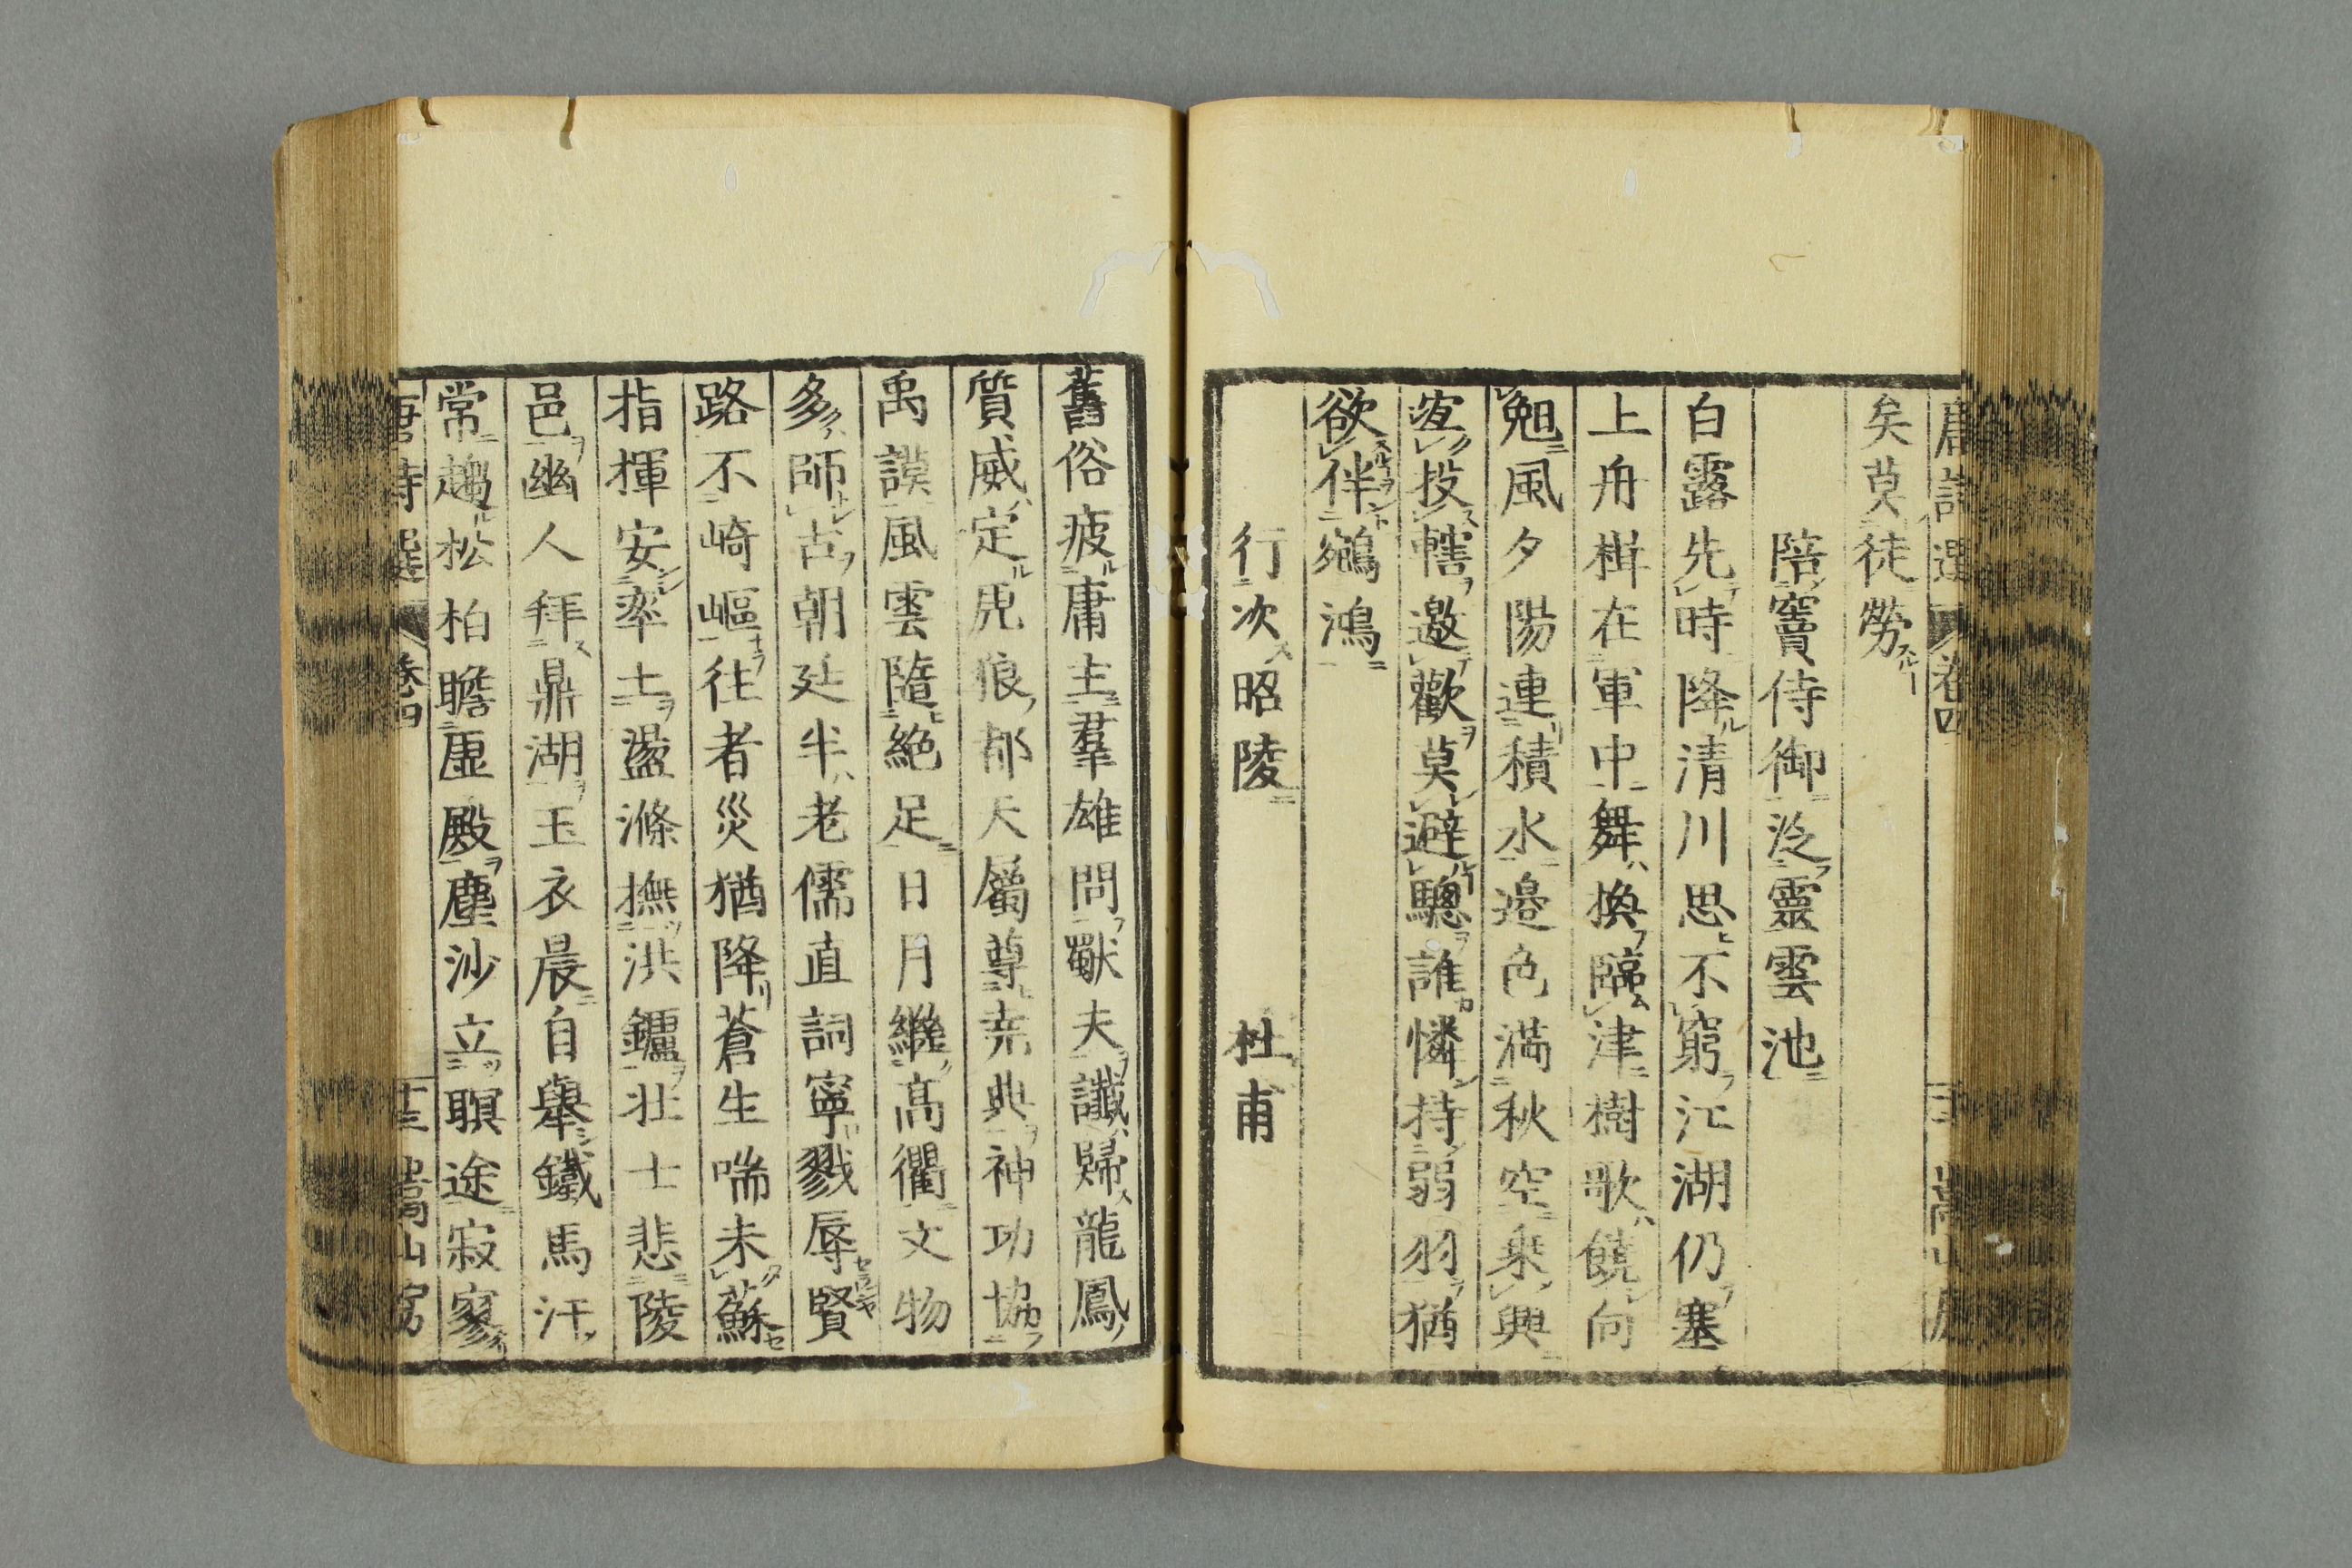 唐詩選 卷四
矣莫徒勞
陪竇侍御泛靈雲池
白露先時降清川思不窮江湖仍塞
上舟楫在軍中舞換臨津樹歌饒向
晚風夕陽連積水邊色滿秋空乘興
宜投轄邀歡莫避驄誰憐持弱羽猶
欲伴鵷鴻
行次昭陵 杜甫
舊俗疲庸主羣雄問獨夫讖歸龍鳳
質威定虎狼都天屬尊堯典神功協
禹謨風雲隨絕足日月繼高衢文物
多師古朝廷半老儒直詞寧戮辱賢
路不崎嶇往者災猶降蒼生喘未蘇
指揮安率土盪滌撫洪鑪壯士悲陵
邑幽人拜鼎湖玉衣晨自舉鐵馬汗
常趨松柏瞻虛殿塵沙立瞑途寂寥
唐詩選 卷四 十三 嵩山房